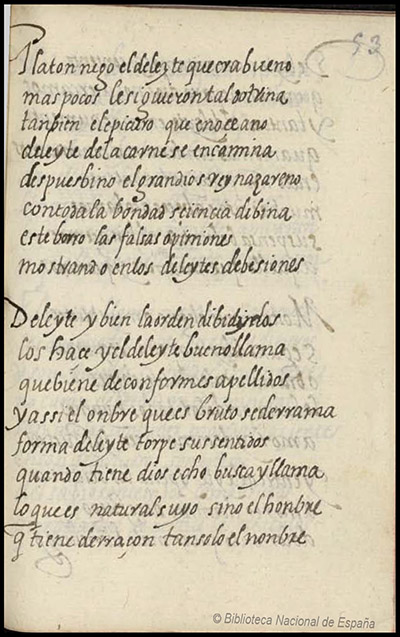 53
Platon nego el deleyte que era bueno
mas pocos le siguieron tal dotrina
tanbien el epicuro que en obceano
deleyte de la carne se encamina
despues bino el gran dios rey nazareno
con toda la bondad sciencia dibina
este borro las falsas opiniones
mostrando en los deleytes debesiones
Deleyte y bien la orden dibidirlos
los hace y el deleyte bueno llama
que biene de conformes apellidos
y assi el onbre que es bruto se derrama
forma deleyte torpe sus sentidos
quando tiene dios echo busca y llama
lo que es natural suyo sino el honbre
q tiene de rraçon tan solo el nonbre
© Biblioteca Nacional de España